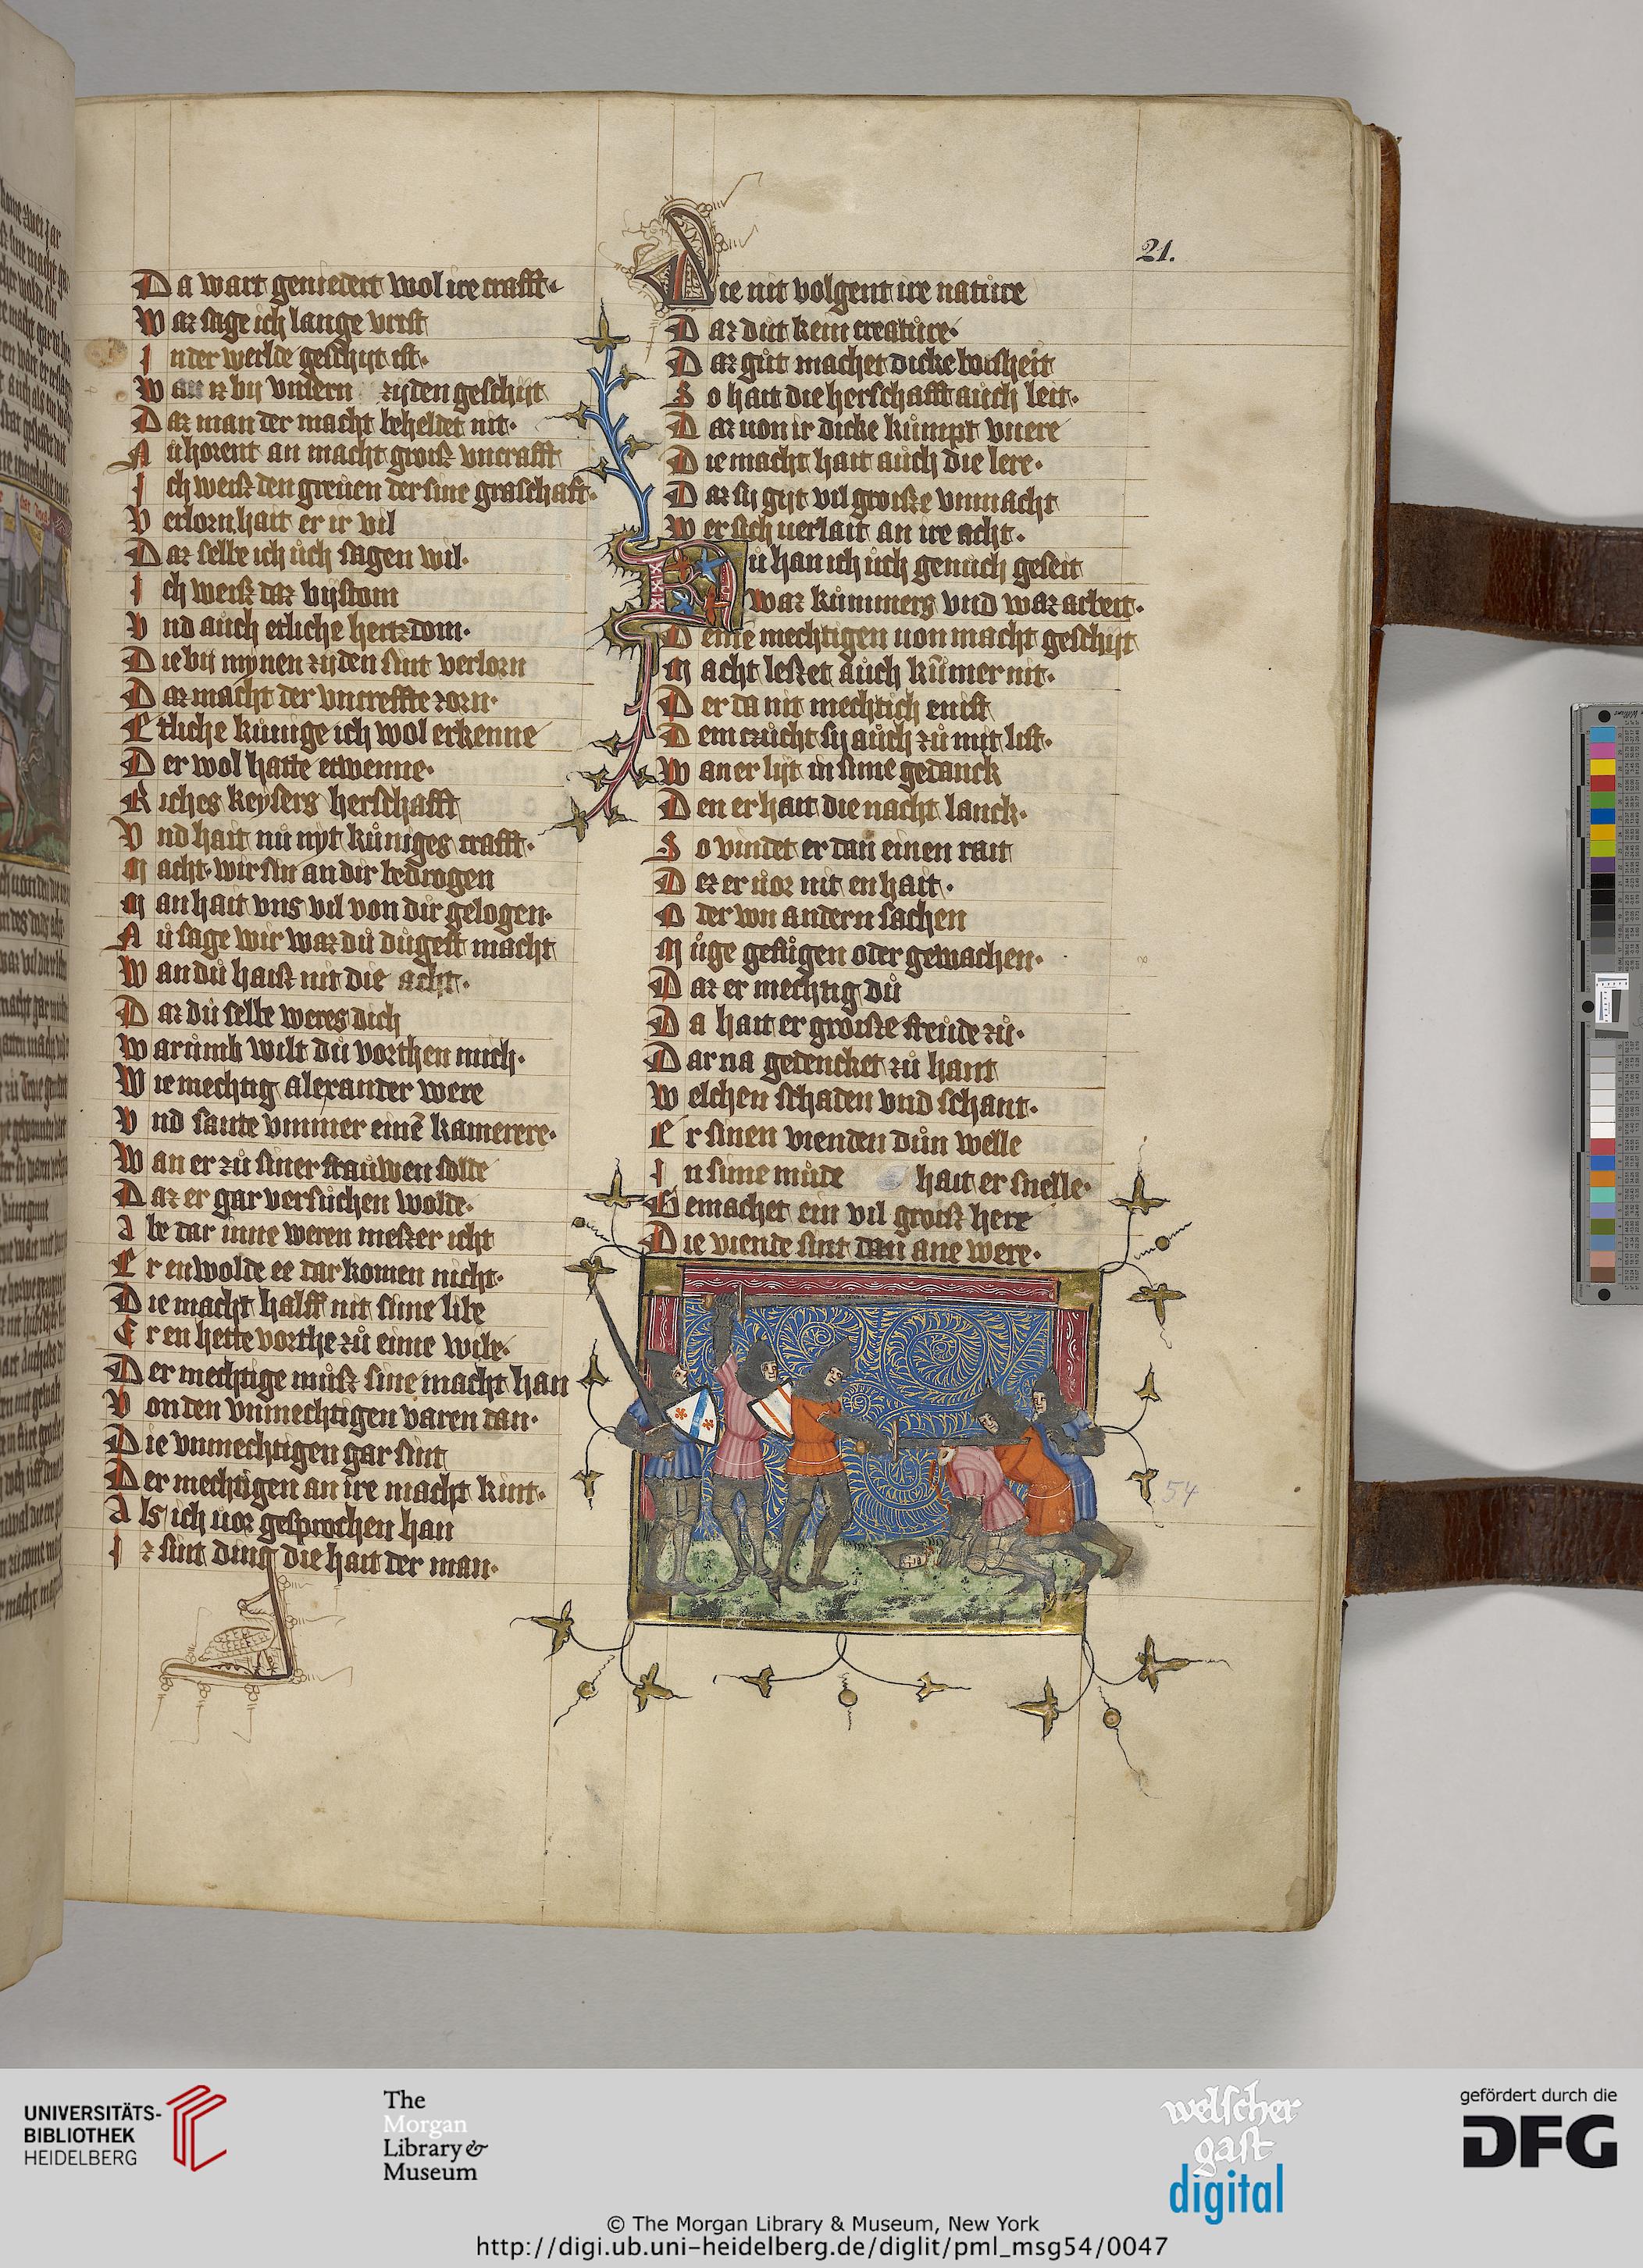 21.
Da wart geniedert wol ire crafft
War sage ich lange vrist
In der werlde geschijt ist
Wan iz bij vnsern zijden geschijt
Daz man der macht beheldet nit
Nu horent an macht groiß vncrafft
Ich weiß den greuen der sine graschaft
Verlorn hait er ir vil
Daz selbe ich uch sagen wil
Ich weiß daz bijstom
Vnd auch etliche hertzdom
Die bij mynen zijden sint verlorn
Daz macht der vncreffte zorn
Etliche kunige ich wol erkenne
Der wol hatte etwenne
Riches keysers herschafft
Vnd hait nu nyt kuniges crafft
Macht wir sin an dir bedrogen
Man hait vns vil von dir gelogen
Nu sage wir waz du dugest macht
Wan du haist nit die acht
Daz du selbe weres dich
Warumb wilt du vorthen mich
Wie mechtig alexander were
Vnd sante vmmer einē kamerere
Wan er zu siner frauwen solte
Daz er gar versuchen wolde
Abe dar inne weren meßer icht
Er enwolde ee dar komen nicht
Die macht halff nit sime libe
Er en hette vorthe zu eime wibe
Der mechtige muß sine macht han
Von den vnmechtigen varen dan
Die vnmechtigen gar sint
Der mechtigen an ire macht kint
Als ich uor gesprochen han
Iz sint ding die hait der man
Die nit volgent ire nature
Daz dut kein creature
Daz gut machet dicke boisheit
So hait die herschafft auch leit
Daz uon ir dicke kumpt vnere
Die macht hait auch die lere
Daz sij gijt vil groiße vnmacht
Wer sich uerlait an ire acht
Nu han ich uch genuch geseit
Waz kummers vnd waz arbeit
Deme mechtigen uon macht geschijt
Macht leßet auch kumer nit
Der da nit mechtich enist
Dem czucht sij auch zu mit list
Wan er lijt in sime gedanck
Den er hait die nacht lanck
So vindet er dan einen rait
Dez er uor nit en hait
Oder von andern sachen
Muge gefugen oder gemachen
Daz er mechtig du
Da hait er groiße freude zu
Dar na gedencket zu hant
Welchen schaden vnd schant
Er sinen vienden dun welle
In sime mude hait er snelle
Gemachet ein vil groiß here
Die viende sint dan ane were
54
UNIVERSITÄTS-
BIBLIOTHEK
HEIDELBERG
The
Morgan
Library &
Museum
welscher
gast
digital
gefördert durch die
DFG
© The Morgan Library & Museum, New York
http://digi.ub.uni-heidelberg.de/diglit/pml_msg54/0047